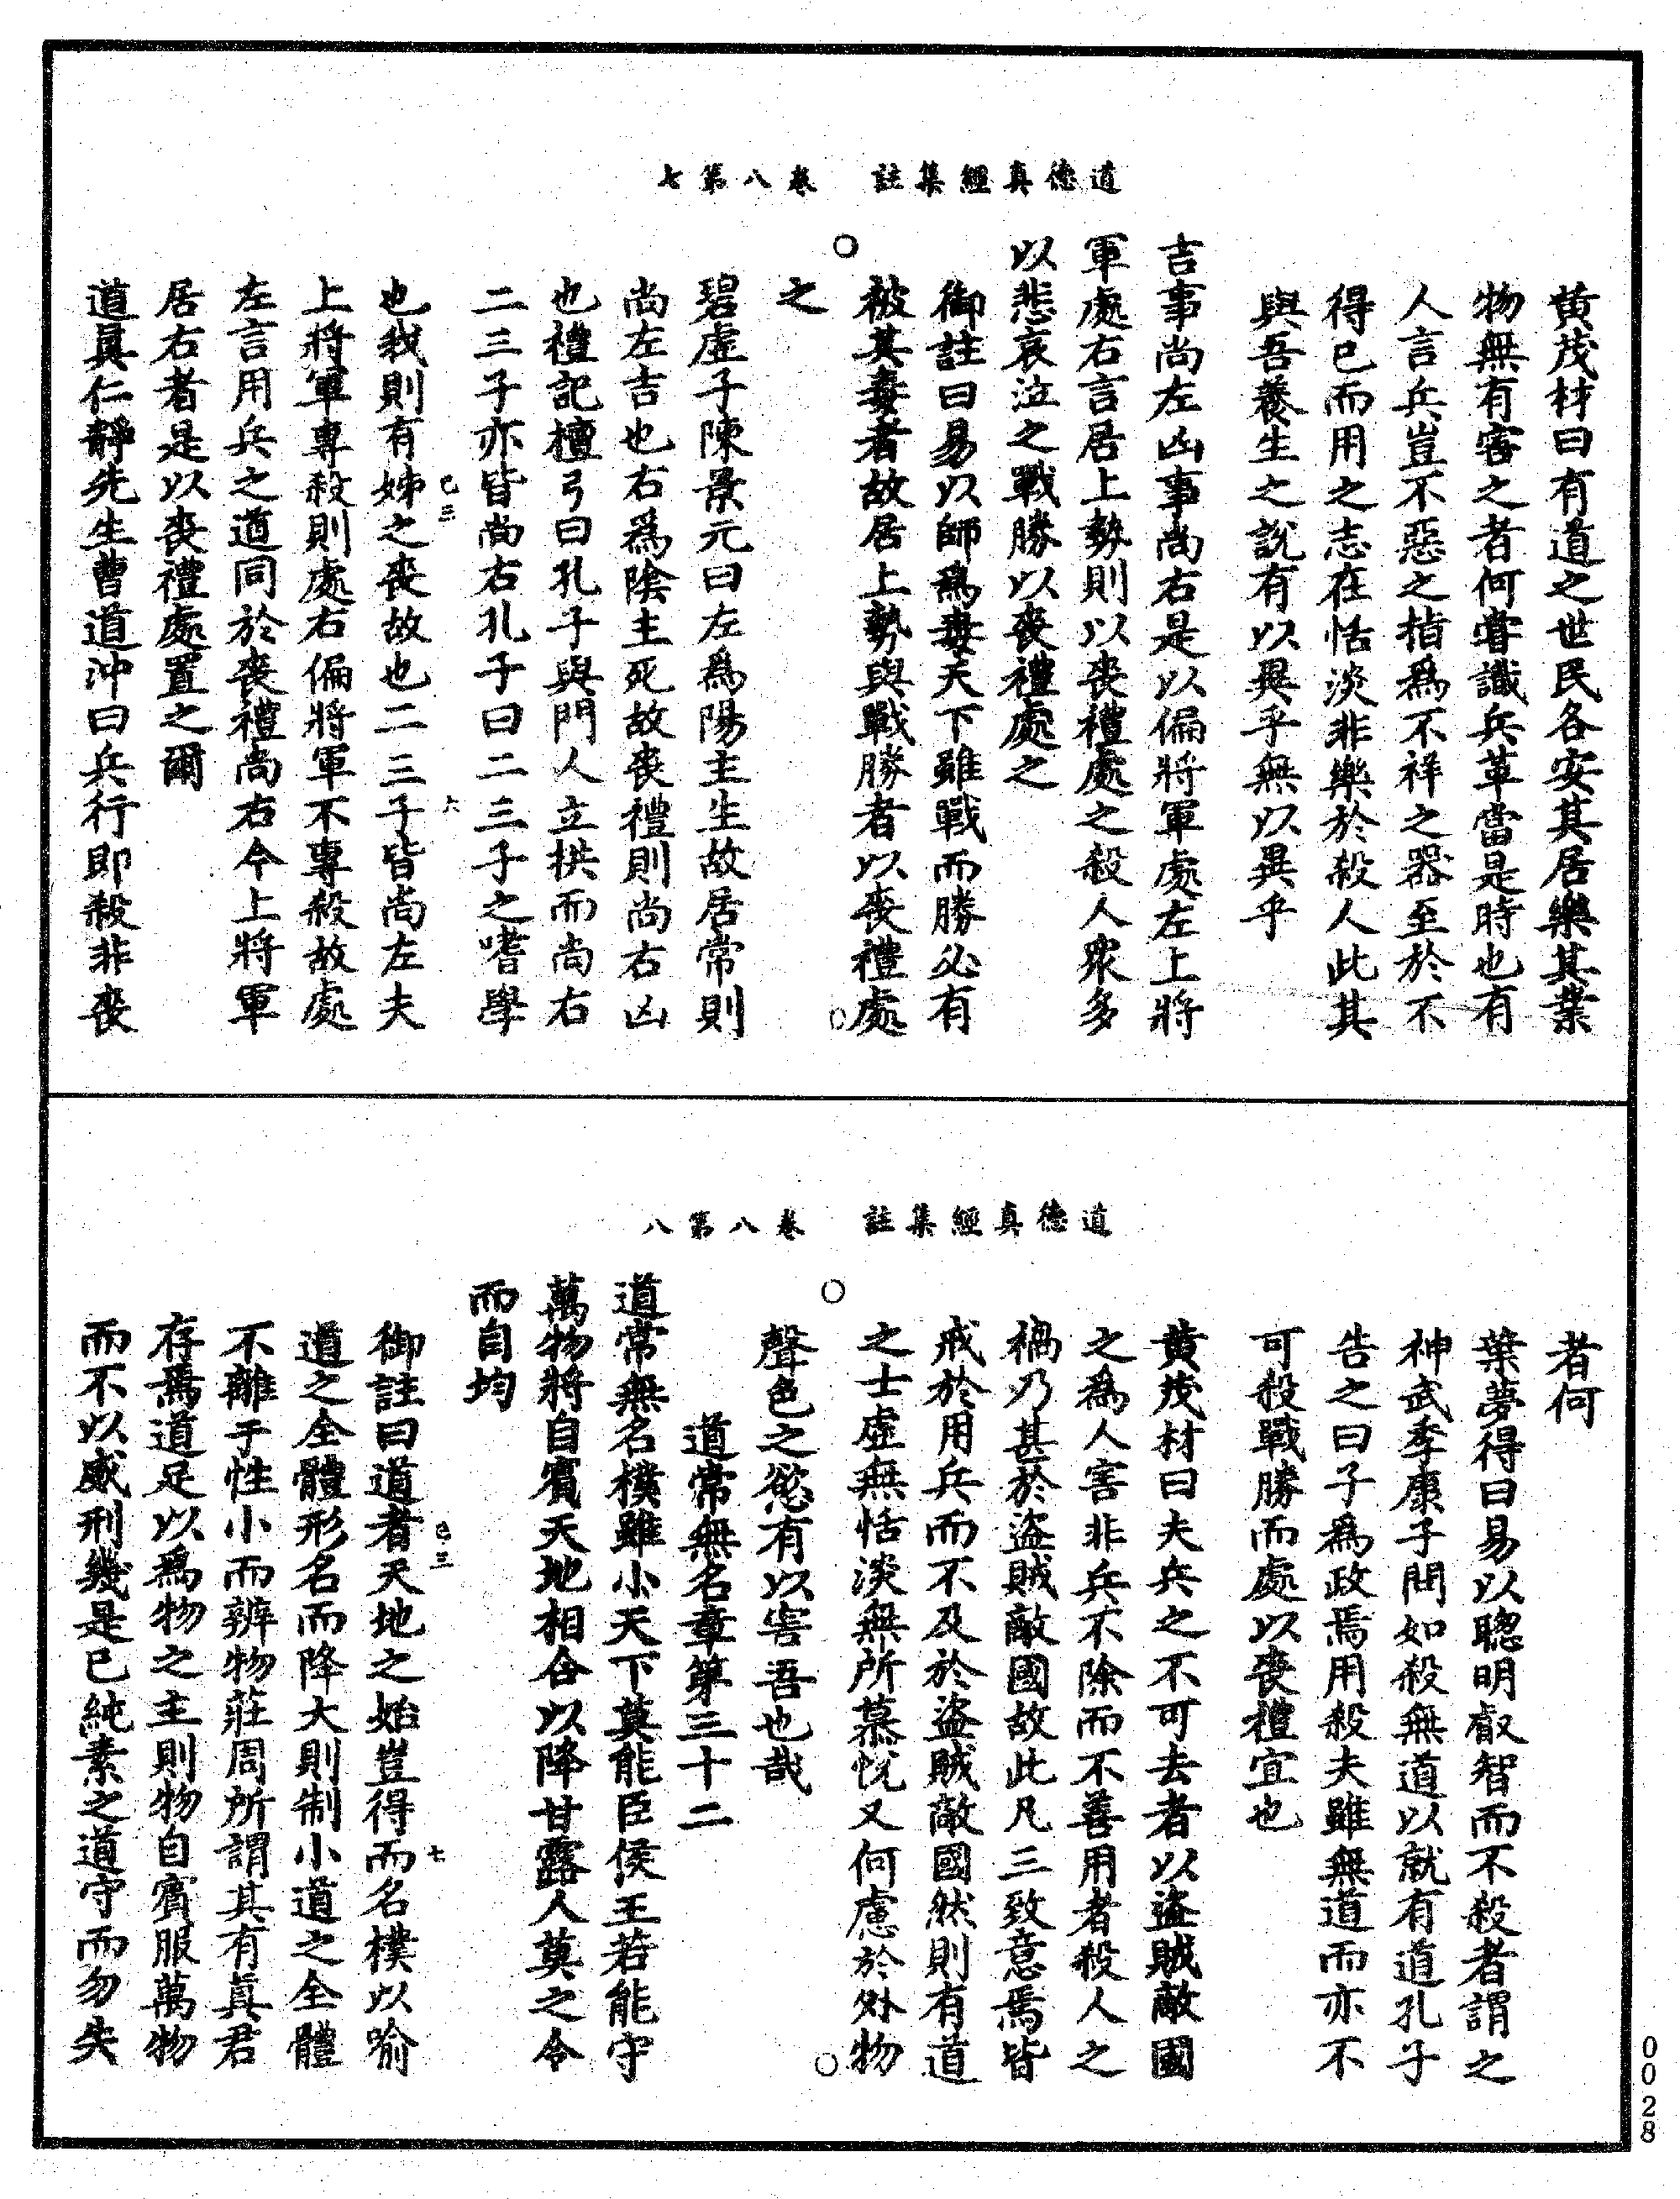 道德真經集註　卷八第七
黃茂材曰有道之世民各安其居樂其業
物無有害之者何嘗識兵革當是時也有
人言兵豈不惡之指爲不祥之器至於不
得已而用之志在恬淡非樂於殺人此其
與吾養生之說有以異乎無以異乎
吉事尚左凶事尚右是以偏將軍處左上將
軍處右言居上勢則以喪禮處之殺人衆多
以悲哀泣之戰勝以喪禮處之
御註曰易以師爲毒天下雖戰而勝必有
被其毒者故居上勢與戰勝者以喪禮處
之
碧虛子陳景元曰左爲陽主生故居常則
尚左吉也右爲陰主死故喪禮則尚右凶
也禮記檀弓曰孔子與門人立拱而尚右
二三子亦皆尚右孔子曰二三子之嗜學
也我則有姊之喪故也二三子皆尚左夫
已三
六
上將軍專殺則處右偏將軍不專殺故處
左言用兵之道同於喪禮尚右今上將軍
居右者是以喪禮處置之爾
道眞仁靜先生曹道沖曰兵行即殺非喪
道德真經集註　卷八第八
者何
葉夢得曰易以聰明叡智而不殺者謂之
神武季康子問如殺無道以就有道孔子
告之曰子爲政焉用殺夫雖無道而亦不
可殺戰勝而處以喪禮宜也
黃茂材曰夫兵之不可去者以盜賊敵國
之爲人害非兵不除而不善用者殺人之
禍乃甚於盜賊敵國故此凡三致意焉皆
戒於用兵而不及於盜賊敵國然則有道
之士虛無恬淡無所慕悅又何慮於外物
聲色之慾有以害吾也哉
道常無名章第三十二
道常無名樸雖小天下莫能臣侯王若能守
萬物將自賓天地相合以降甘露人莫之令
而自均
御註曰道者天地之始豈得而名樸以喻
已三
七
道之全體形名而降大則制小道之全體
不離于性小而辨物莊周所謂其有眞君
存焉道足以爲物之主則物自賓服萬物
而不以威刑幾是已純素之道守而勿失
0028